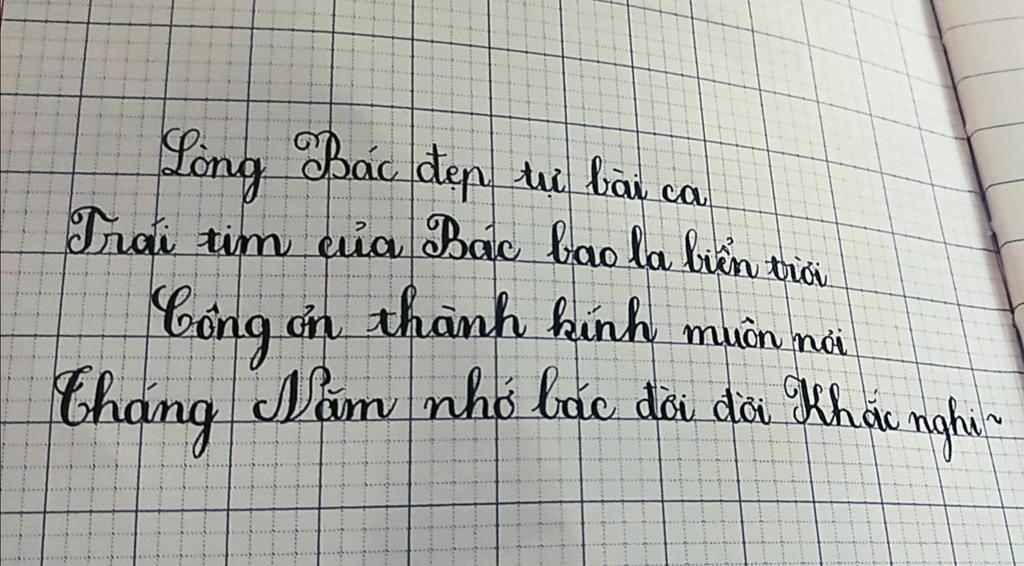 Lòng Bác đẹp tự bài ca
Trái tim của Bác bao la biển trời
Công ơn thành kính muôn nơi
Tháng Năm nhớ bác đời đời Khắc nghi~